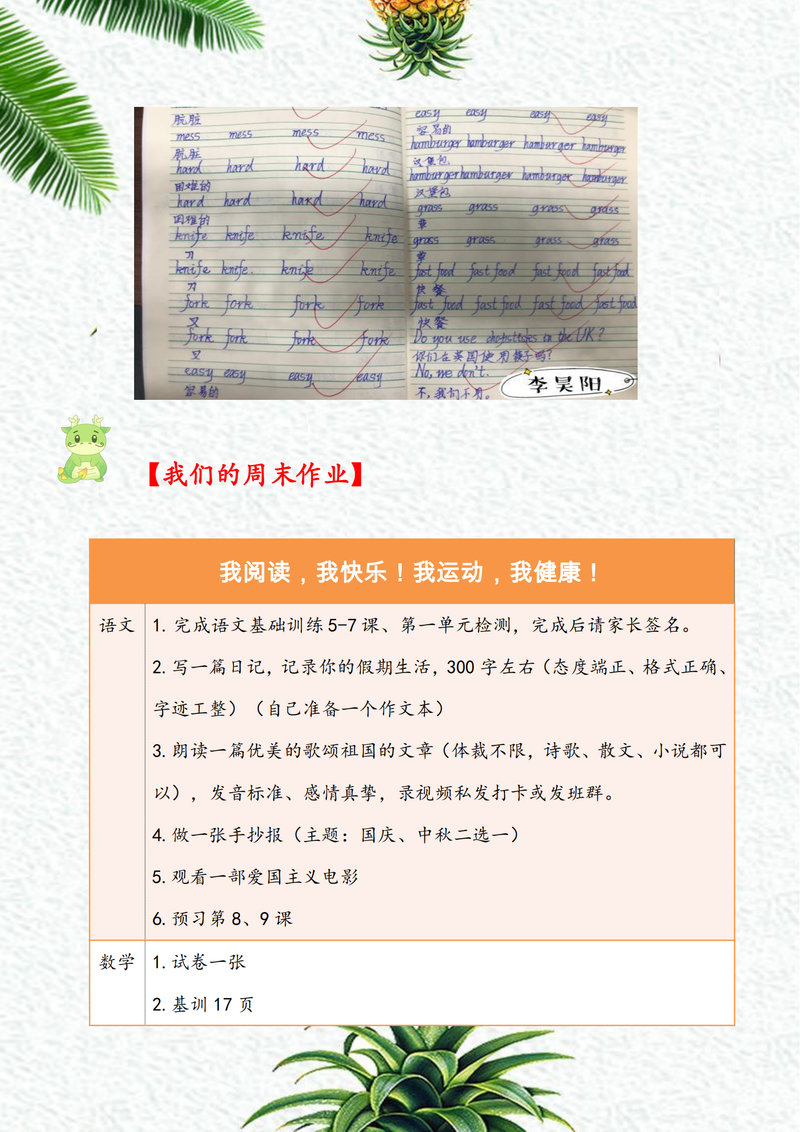 脏脏
mess mess mess mess
脏脏
hard hard hard hard
困难的
hard hard hard hard
困难的
knife knife knife knife
刀
knife knife. knife knife
刀
fork fork fork fork
叉
fork fork fork fork
叉
easy easy easy easy
容易的
easy easy easy easy
容易的
hamburger hamburger hamburger hamburger
汉堡包
hamburger hamburger hamburger hamburger
汉堡包
grass grass grass grass
草
grass grass grass grass
草
fast food fast food fast food fast food
快餐
fast food fast food fast food fast food
快餐
Do you use chopsticks in the UK?
你们在英国使用筷子吗?
No, we don't.
不,我们不用。
李昊阳
【我们的周末作业】
我阅读，我快乐！我运动，我健康！
语文
1. 完成语文基础训练 5-7 课、第一单元检测，完成后请家长签名。
2. 写一篇日记，记录你的假期生活，300 字左右（态度端正、格式正确、
字迹工整）（自己准备一个作文本）
3. 朗读一篇优美的歌颂祖国的文章（体裁不限，诗歌、散文、小说都可
以），发音标准、感情真挚，录视频私发打卡或发班群。
4. 做一张手抄报（主题：国庆、中秋二选一）
5. 观看一部爱国主义电影
6. 预习第 8、9 课
数学
1. 试卷一张
2. 基训 17 页